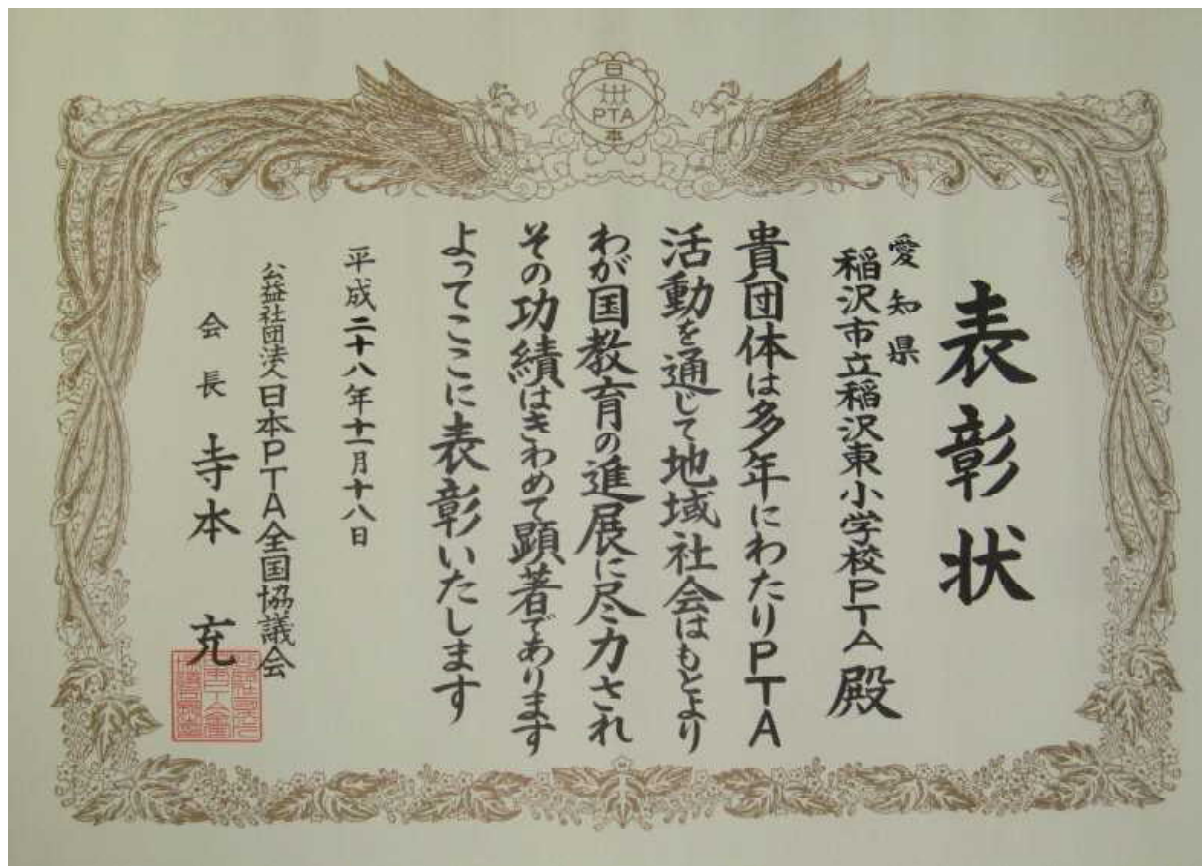 日本
PTA
表彰状
愛知県
稲沢市立稲沢東小学校PTA殿
貴団体は多年にわたりPTA
活動を通じて地域社会はもとより
わが国教育の進展に尽力され
その功績はきわめて顕著であります
よってここに表彰いたします
平成二十八年十一月十八日
公益社団法人日本PTA全国協議会
会長 寺本 充